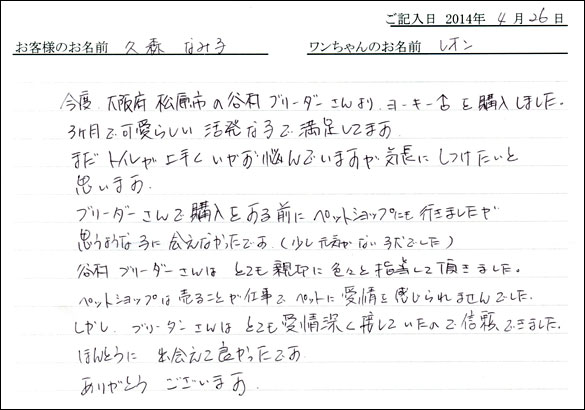 ご記入日 2014年 4月 26日
お客様のお名前 久森 なみ子 ワンちゃんのお名前 レオン
今度 大阪府 松原市の谷村ブリーダーさんより、ヨーキー♂を購入しました。
3ヶ月で可愛らしい 活発な子で満足してます
まだトイレが上手くいかず悩んでいますが気長にしつけたいと
思います
ブリーダーさんで購入をする前にペットショップにも行きましたが
思うような子に会えなかったです(少し元気がない子たでした)
谷村ブリーダーさんは とても親切に色々と指導して頂きました。
ペットショップは売ることが仕事で ペットに愛情を感じられませんでした。
しかし、ブリーダーさんは とても愛情深く接していたので信頼できました。
ほんとうに 出会えて良かったです
ありがとう ございます